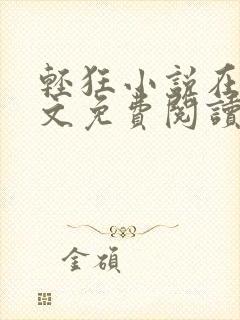 輕狂小說在
文免費閱讀
金碩